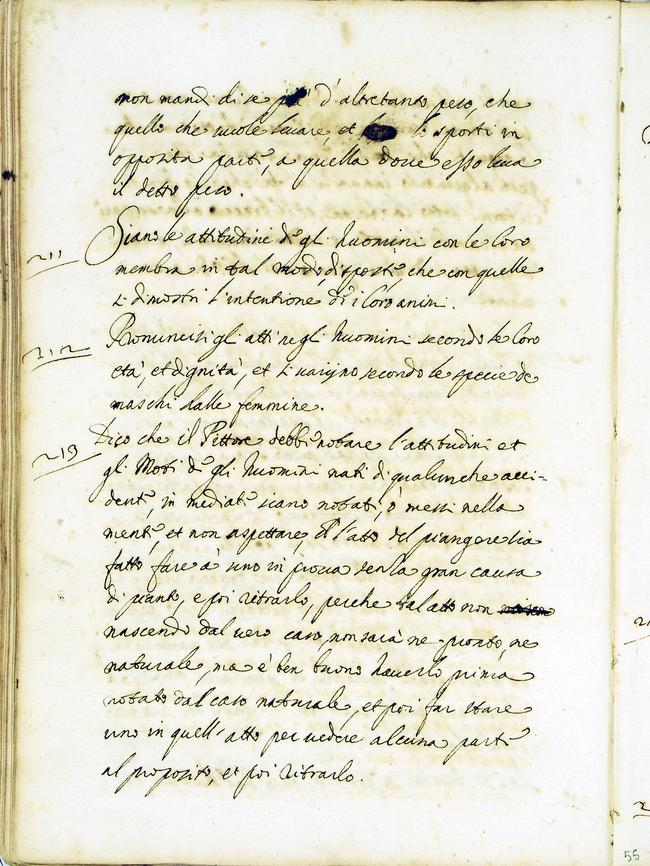 non mandi di se piu d'altretanto peso, che
quello che uuole leuare, et lo sporti in
opposita parte, a quella doue esso leua
il detto peso.
211
Siano le attitudini de gl'huomini con le loro
membra in tal modo disposte, che con quelle
si dimostri l'intentione di i loro animi.
212
Pronuncisi gl'atti ne gl'huomini secondo le loro
età, et dignità, et si uarijno secondo le specie de
maschi dalle femmine.
213
Dico che il Pittore debbe notare l'attitudini et
gli Moti de gli huomini nati di qualunche acci-
dente, in mediate siano notati, ò messi nella
mente, et non aspettare, che l'atto del piangere sia
fatto fare à uno in proua senza gran causa
di pianto, e poi ritrarlo, perche tal atto non
nascendo dal uero caso, non sarà ne pronto, ne
naturale, ma è ben buono hauerlo prima
notato dal caso naturale, et poi far stare
uno in quell'atto per uedere alcuna parte
al proposito, et poi ritrarlo.
55